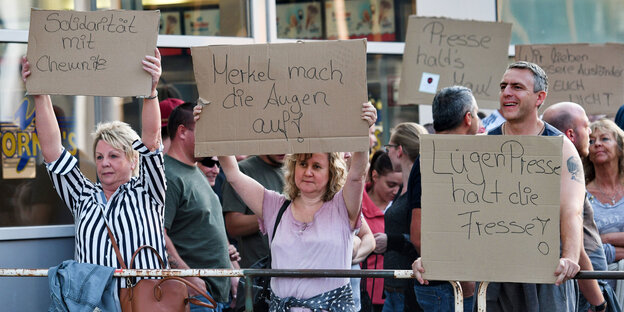 Solidarität
mit
Chemnitz
Merkel mach
die Augen
auf!
Presse
halt's
Maul
Ausländer
EUCH
LügenPresse
halt die
Fresse!